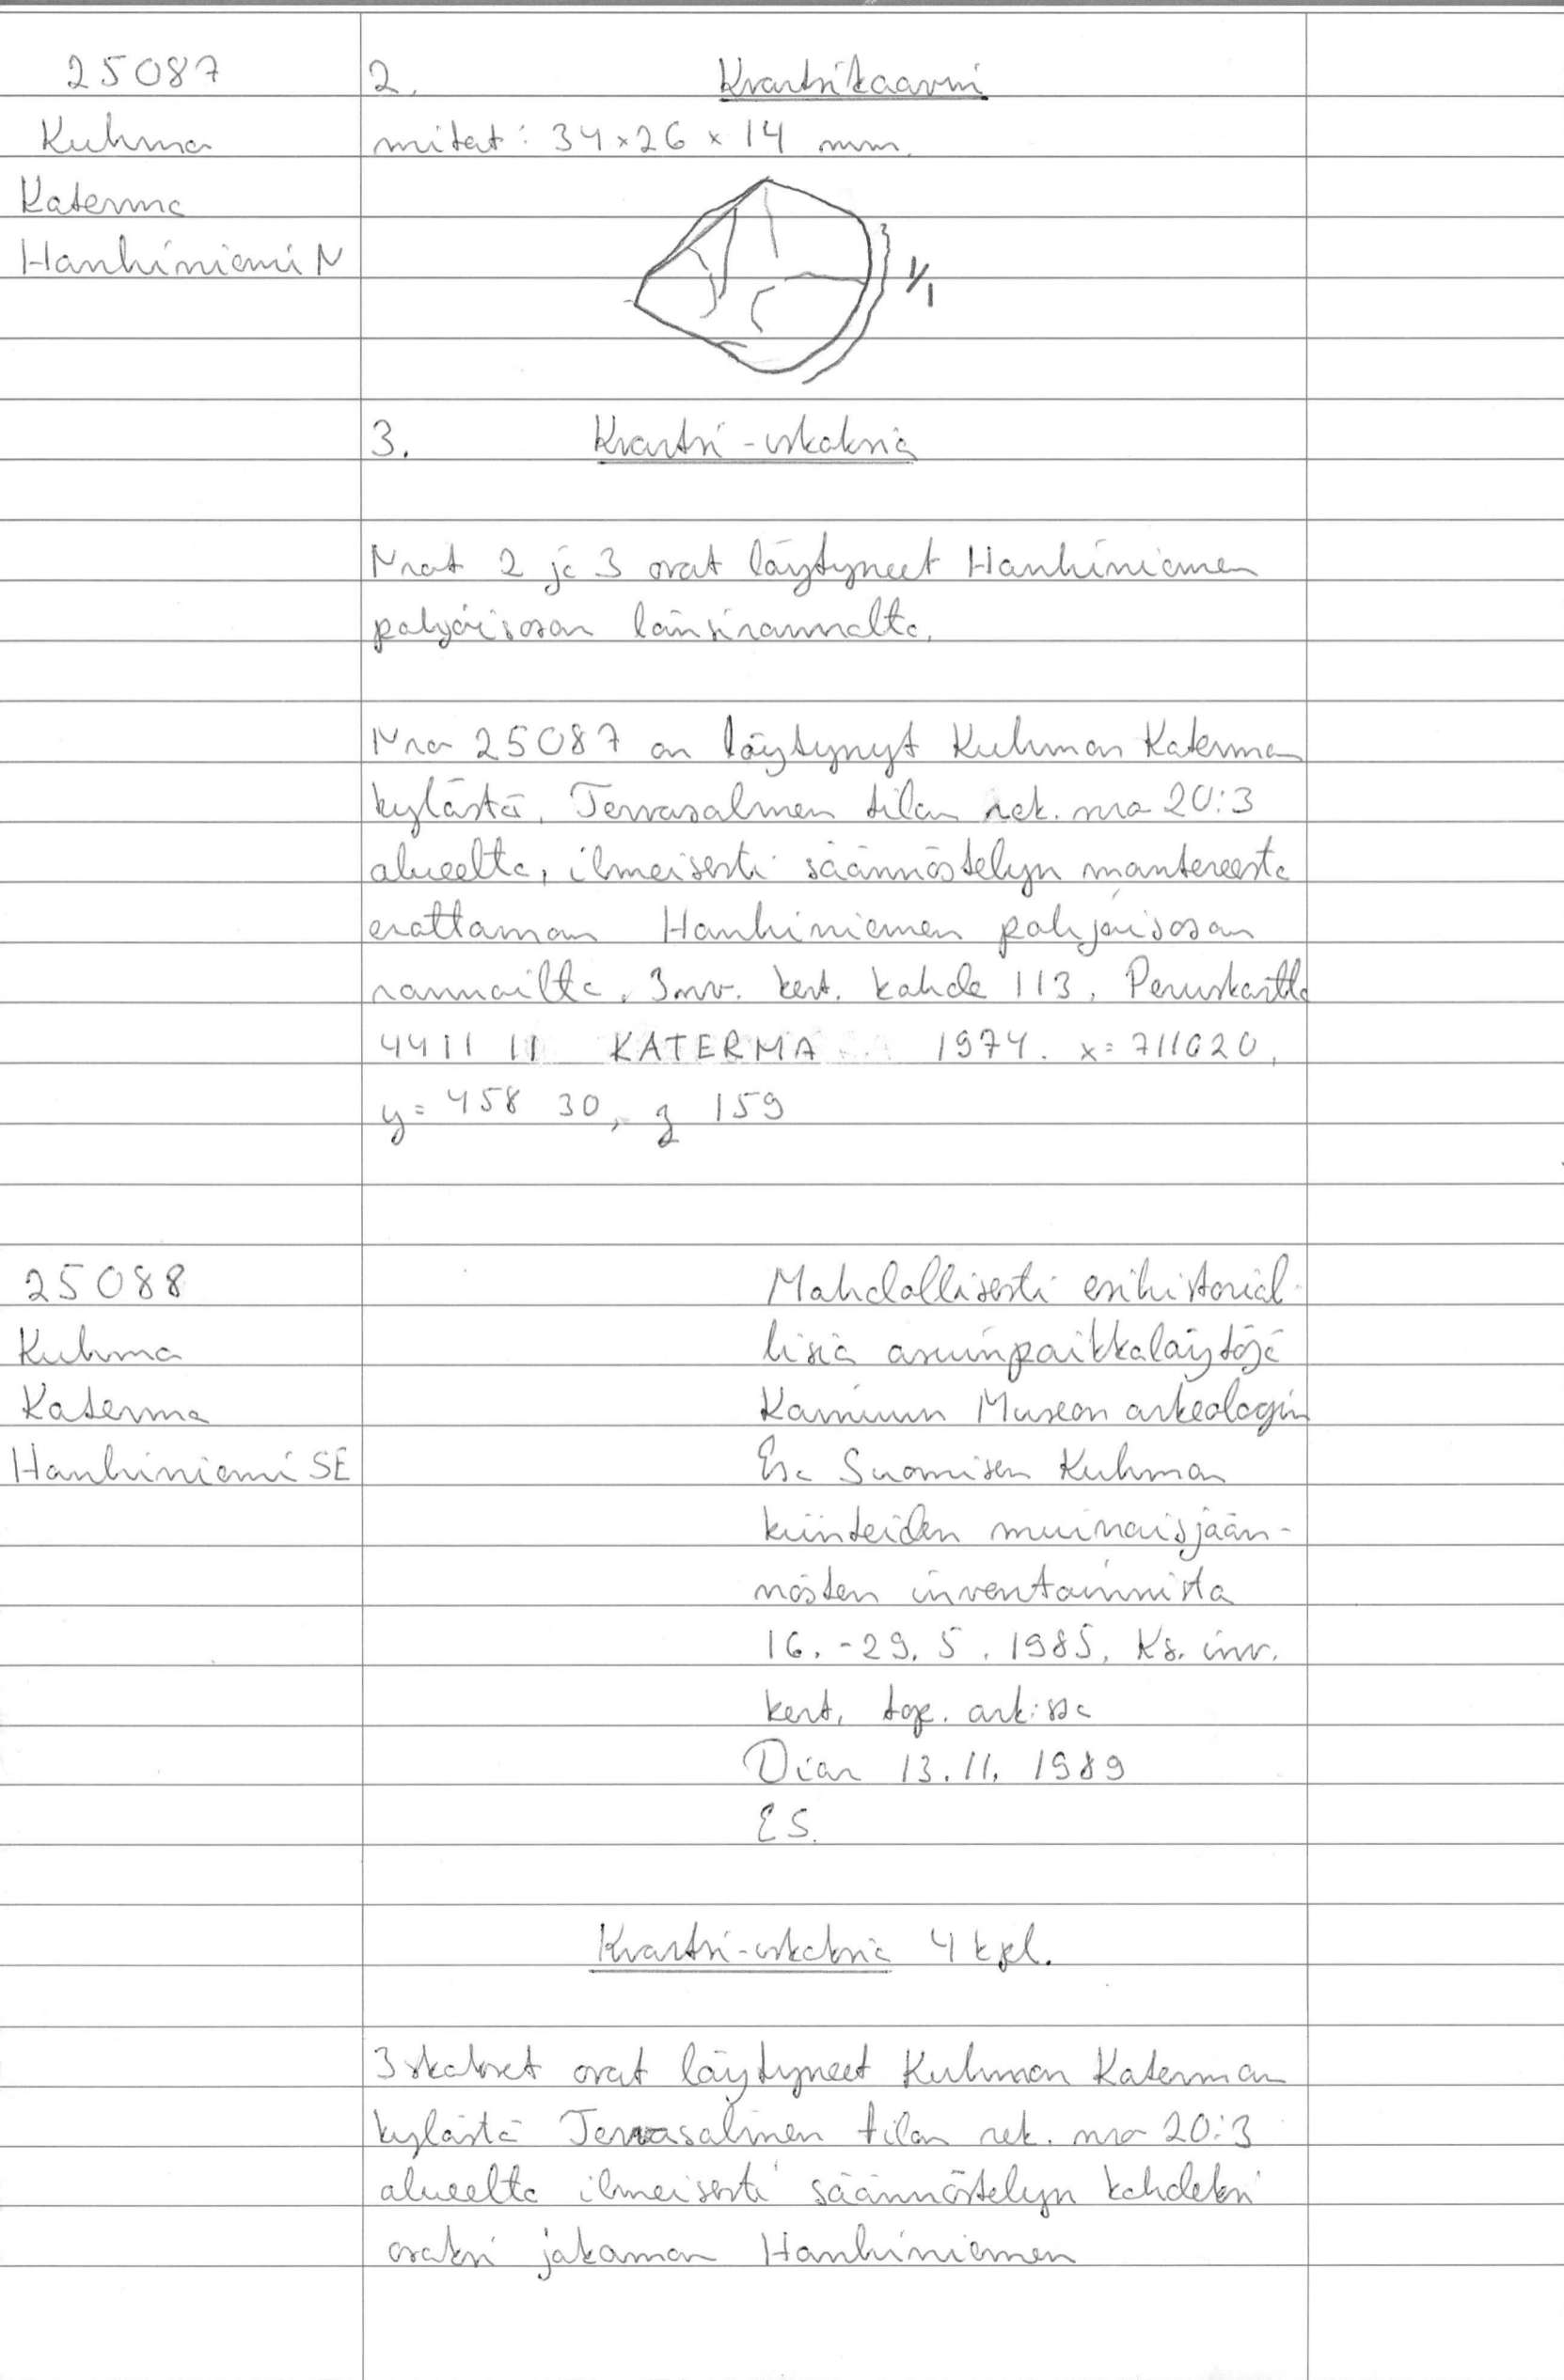 25087 2. Kvartsikaavin
Kuhmo mitat: 34 x 26 x 14 mm.
Katerma
Hanhiniemi N
1/1
3. Kvartsi-iskoksia
Nrot 2 ja 3 ovat löytyneet Hanhiniemen
pohjoisosan länsirannalta.
Nro 25087 on löytynyt Kuhmon Katerman
kylästä, Tervasalmen tilan rek. nro 20:3
alueelta, ilmeisesti säännöstelyn mantereesta
erottaman Hanhiniemen pohjoisosan
rannoilta. Inv. kert. kohde 113. Peruskartta
4411 11 KATERMA 1974. x= 711020,
y= 458 30, z 159
25088 Mahdollisesti esihistorial-
Kuhmo lisiä asuinpaikkalöytöjä
Katerma Kainuun Museon arkeologin
Hanhiniemi SE Esa Suomisen Kuhmon
kiinteiden muinaisjään-
nösten inventoinnista
16. - 29. 5. 1985. Ks. inv.
kert. top. ark:ssa
Dian 13.11. 1989
ES.
Kvartsi-iskoksia 4 kpl.
Iskokset ovat löytyneet Kuhmon Katerman
kylästä Tervasalmen tilan rek. nro 20:3
alueelta ilmeisesti säännöstelyn kahdeksi
osaksi jakaman Hanhiniemen